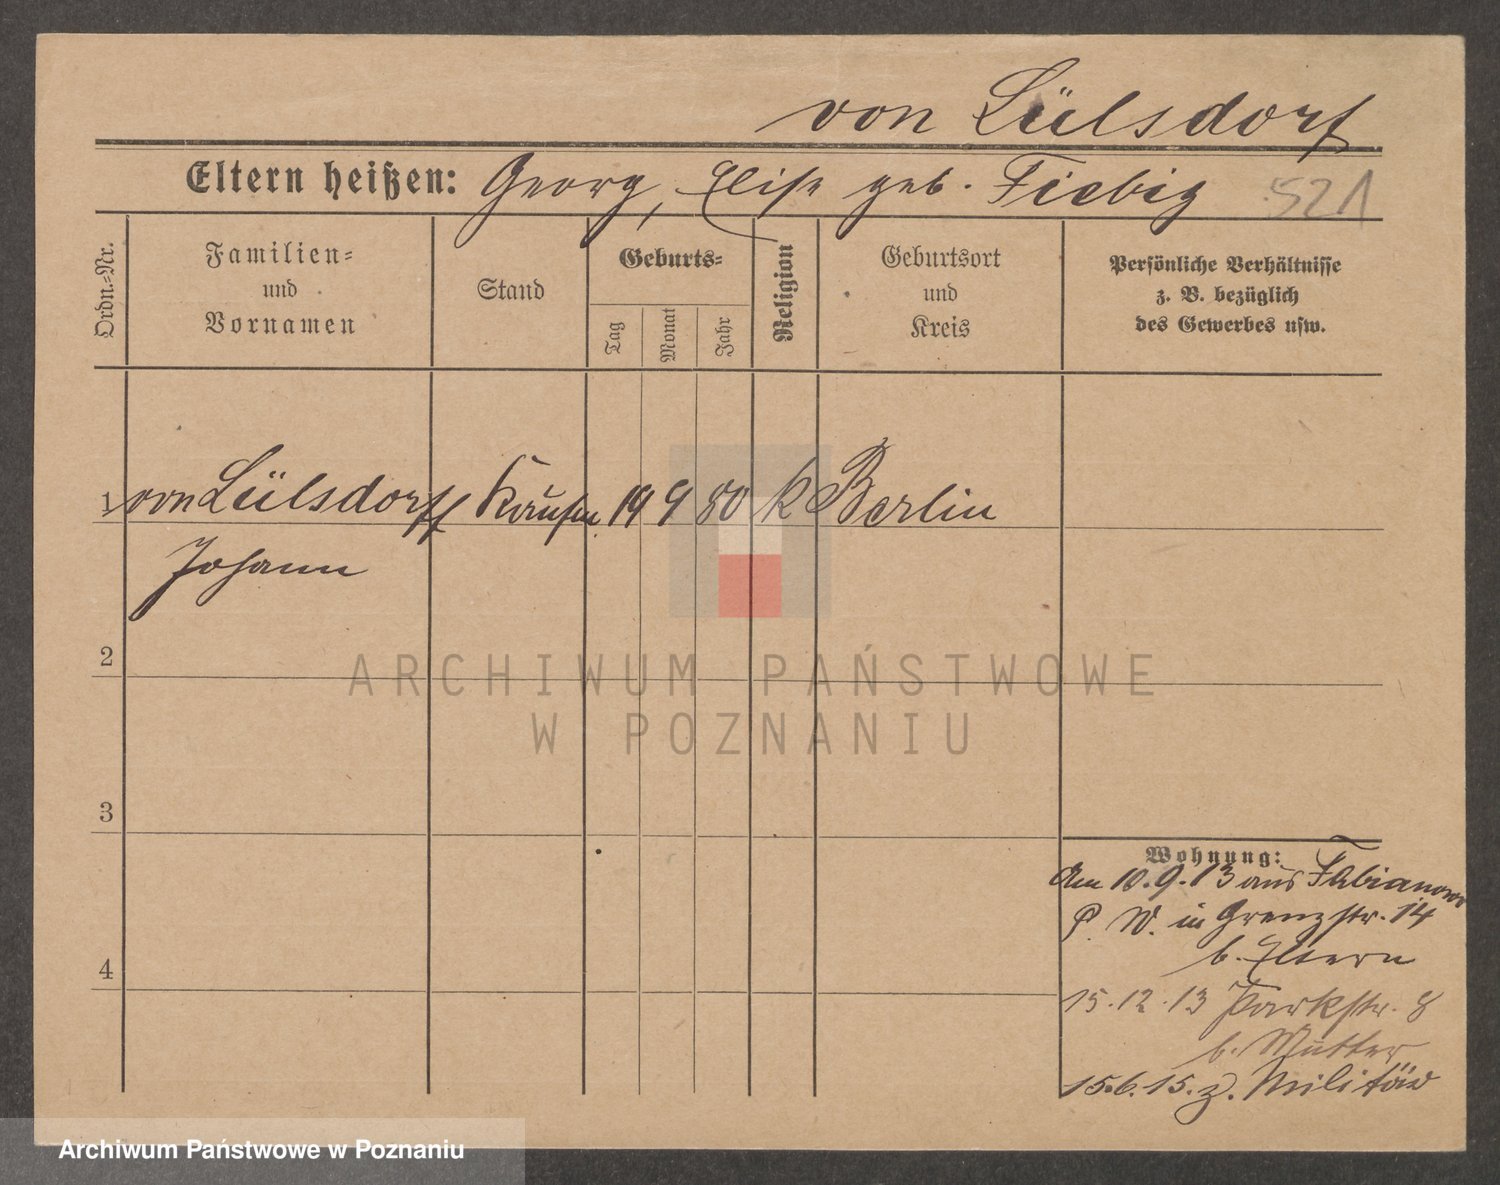 von Lülsdorf
Eltern heißen: Georg, Elise geb. Fiebig 521
Ordn.-Nr.
Familien-
und
Vornamen
Stand
Geburts-
Tag
Monat
Jahr
Religion
Geburtsort
und
Kreis
Persönliche Verhältnisse
z. B. bezüglich
des Gewerbes usw.
1 von Lülsdorff Kaufm. 19 9 80 k Berlin
Johann
2
3
4
Wohnung:
Am 10.9.13 aus Fabianowo
P. W. in Grenzstr. 14
b. Eltern
15.12.13 Parkstr. 8
b. Mutter
15.6.15. z. Militär
ARCHIWUM PAŃSTWOWE
W POZNANIU
Archiwum Państwowe w Poznaniu